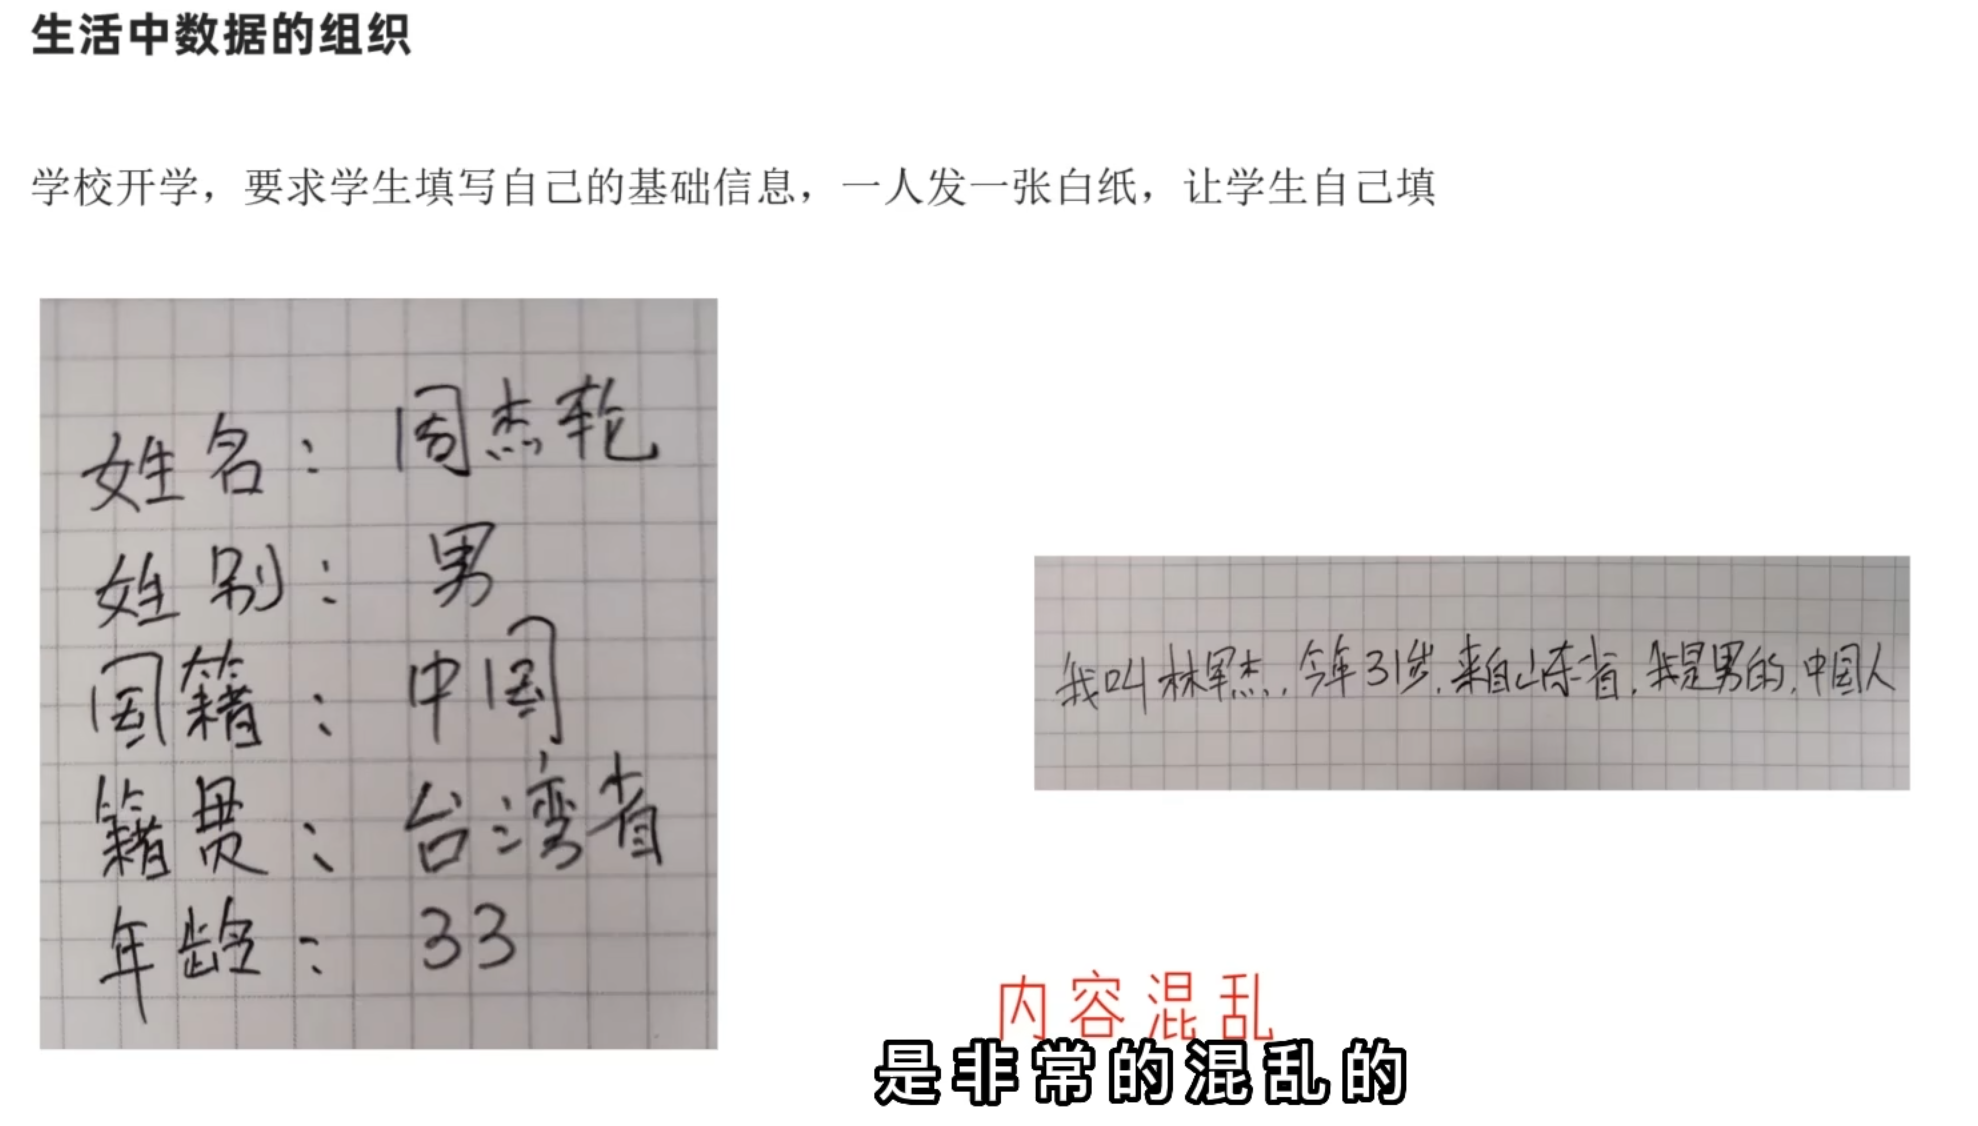 生活中数据的组织
学校开学，要求学生填写自己的基础信息，一人发一张白纸，让学生自己填
姓名：周杰轮
姓别：男
国籍：中国
籍贯：台湾省
年龄：33
我叫林军杰，今年31岁，来自山东省，我是男的，中国人
内容混乱
是非常的混乱的